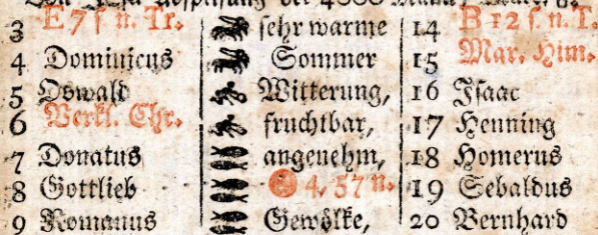 der 4000
3 E 7 f n. Tr. sehr warme 14 B 12 f. n. T.
4 Dominicus Sommer 15 Mar. Him.
5 Oswald Witterung, 16 Isaac
6 Verkl. Chr. fruchtbar, 17 Henning
7 Donatus angenehm, 18 Homerus
8 Gottlieb 4. 57 n. 19 Sebaldus
9 Romanus Gewölke, 20 Bernhard